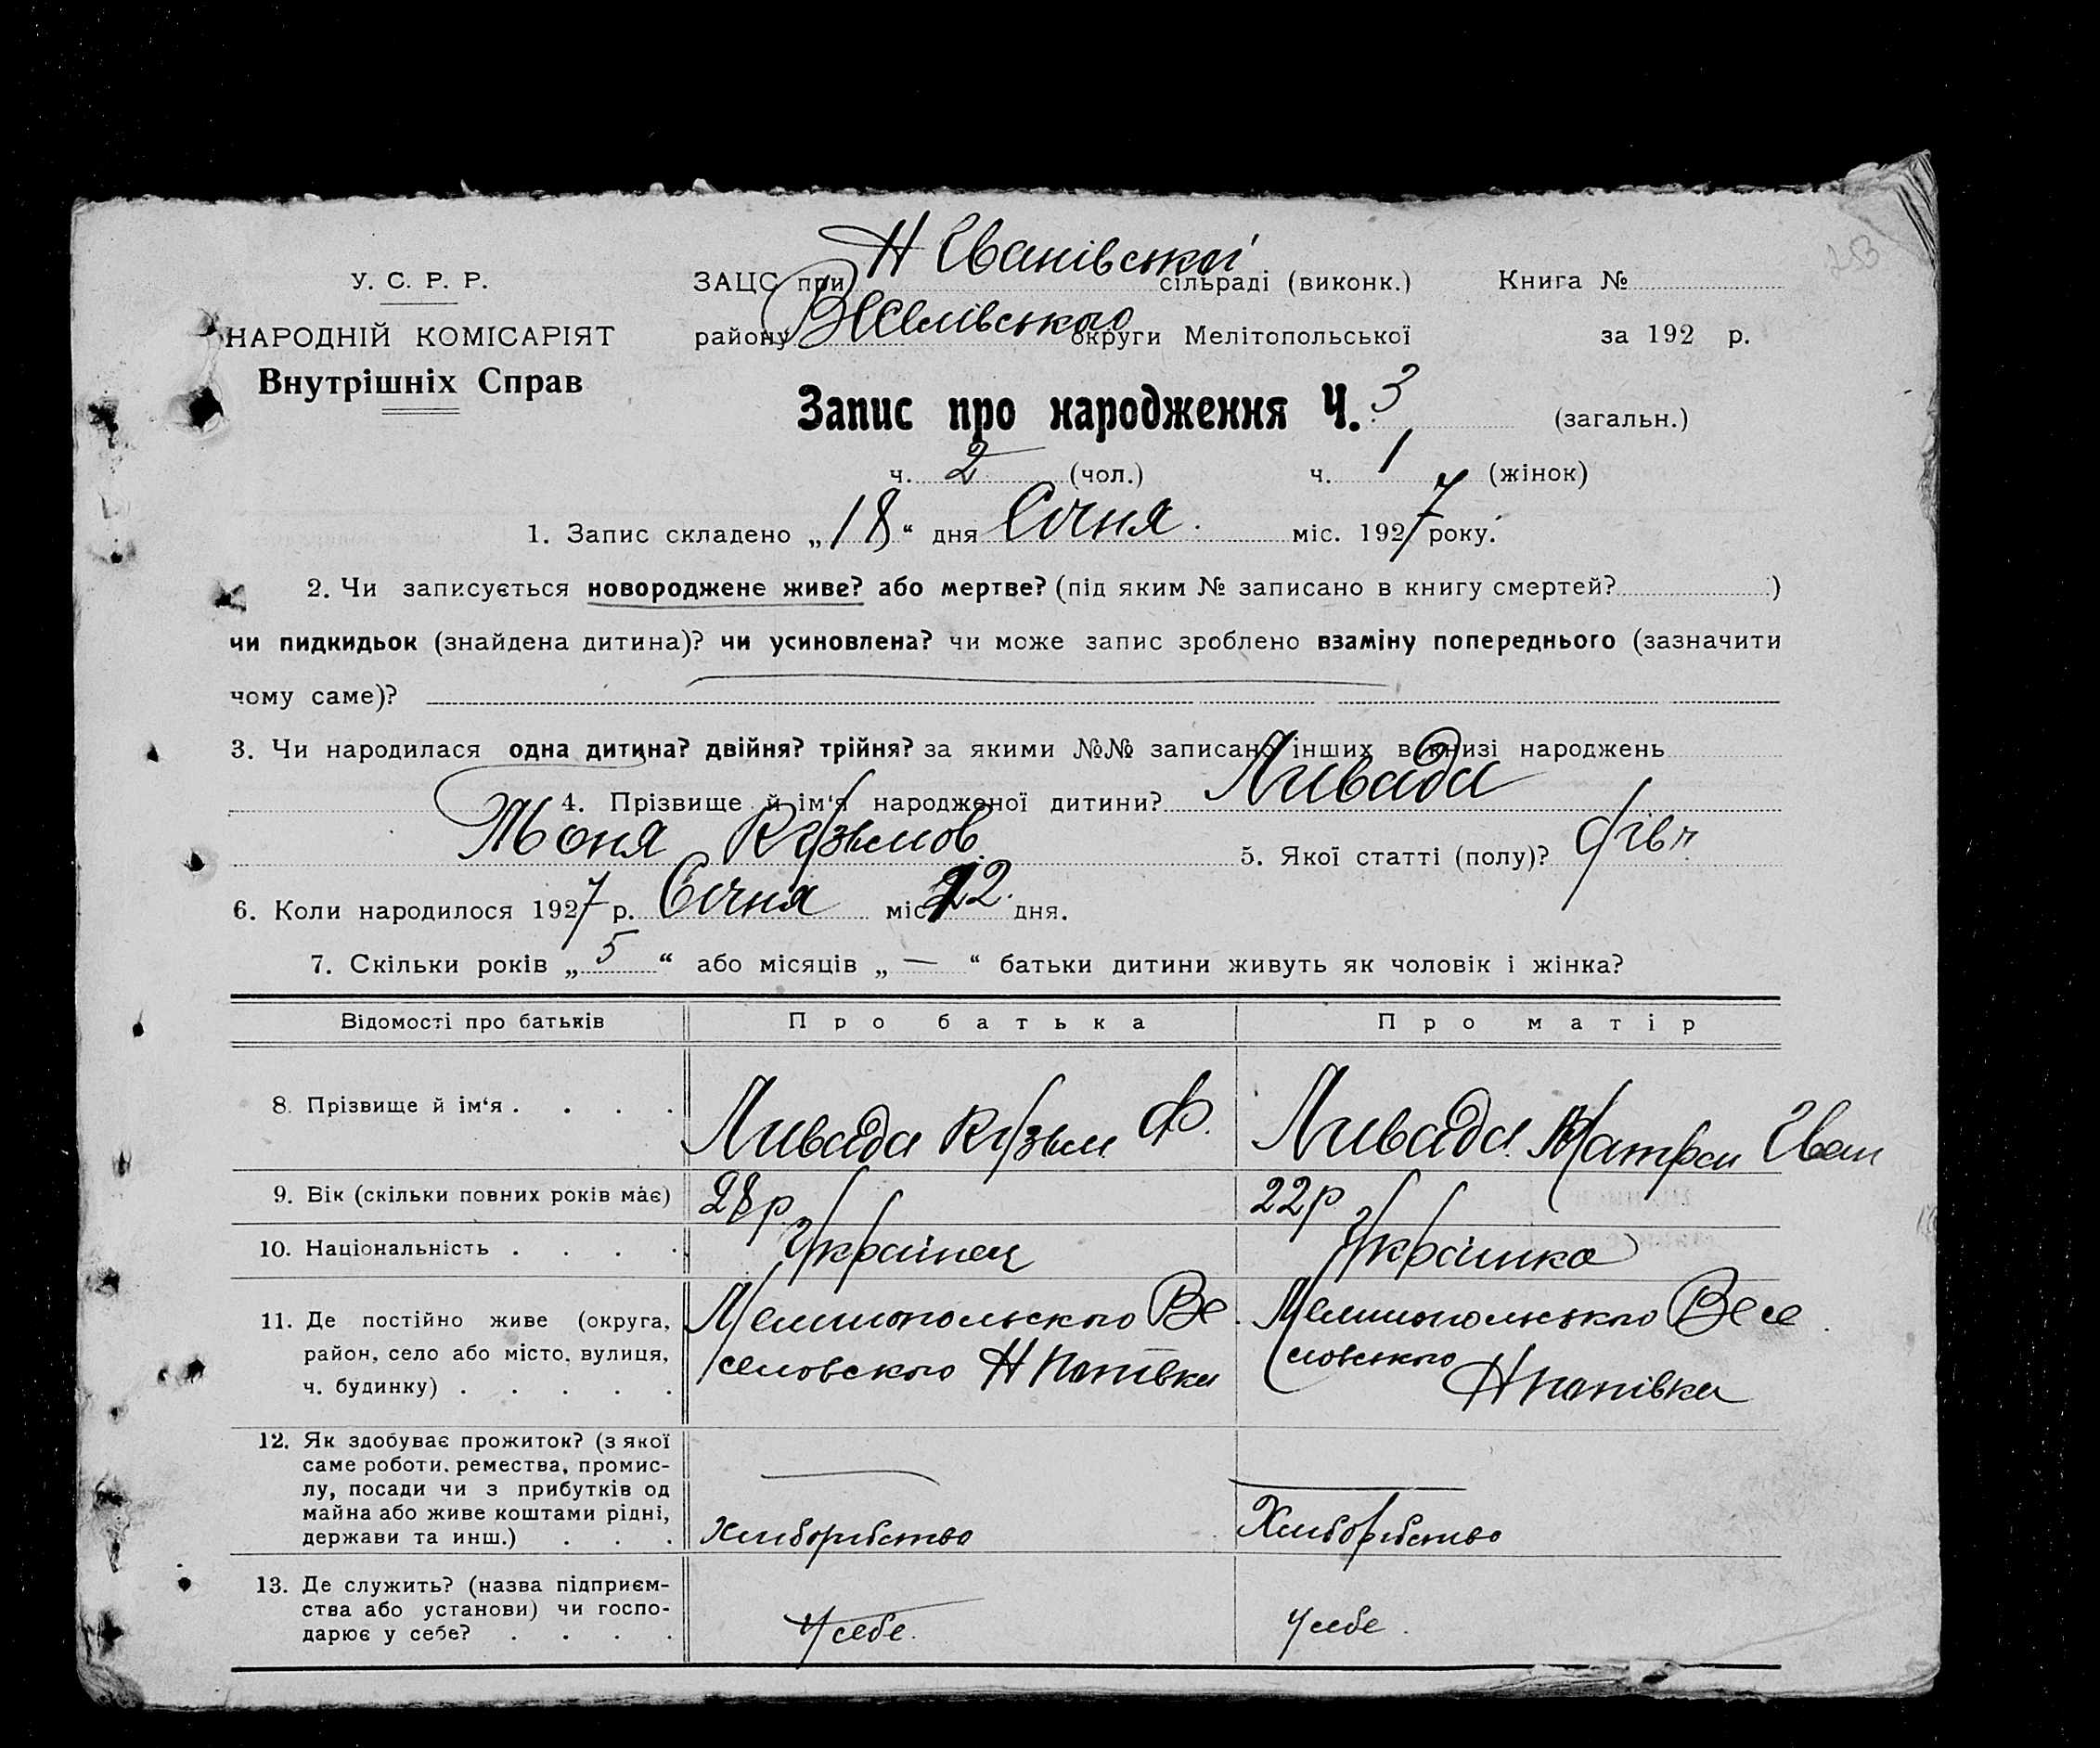 253
Н Іванівської
У. С. Р. Р. ЗАЦС при сільраді (виконк.) Книга №
НАРОДНІЙ КОМІСАРІЯТ району Веселівського округи Мелітопольської за 192 р.
Внутрішніх Справ
Запис про народження Ч. 3 (загальн.)
ч. 2 (чол.) ч. 1 (жінок)
1. Запис складено „18“ дня Січня міс. 1927 року.
2. Чи записується новороджене живе? або мертве? (під яким № записано в книгу смертей? )
чи пидкидьок (знайдена дитина)? чи усиновлена? чи може запис зроблено взаміну попереднього (зазначити
чому саме)?
3. Чи народилася одна дитина? двійня? трійня? за якими №№ записано інших в книзі народжень
4. Прізвище й ім‘я народженої дитини? Ливада
Тоня Кузьмов. 5. Якої статті (полу)? дівч.
6. Коли народилося 1927 р. Січня міс. 12 дня.
7. Скільки років „5“ або місяців „—“ батьки дитини живуть як чоловік і жінка?
Відомості про батьків Про батька Про матір
8. Прізвище й ім‘я . . . . Ливада Кузьм Ф. Ливада Матрьон Іван
9. Вік (скільки повних років має) 28 р. 22 р
10. Національність . . . . Українец Українка
11. Де постійно живе (округа, Мелитопольского Ве Мелитопольського Весе
район, село або місто, вулиця, селовского Н Попівка ловського
ч. будинку) . . . . . Н попівка
12. Як здобуває прожиток? (з якої
саме роботи, ремества, промис-
лу, посади чи з прибутків од
майна або живе коштами рідні,
держави та инш.) . . . Хлиборобство Хлиборобство
13. Де служить? (назва підприєм-
ства або установи) чи госпо-
дарює у себе? . . . . У себе. У себе.